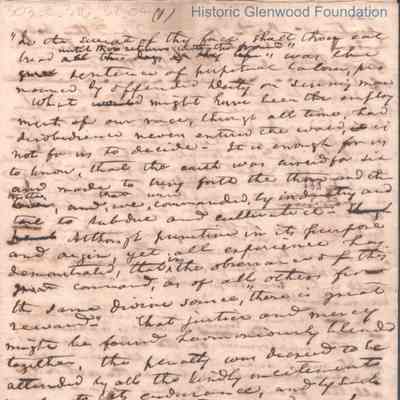 Historic Glenwood Foundation
(1)
"In the sweat of thy face, shalt thou eat
until thou return into the ground"
bread all the days of thy life" was the
great sentence of perpetual labour, pro
nounced by offended Deity on "sinning man
What would might have been the employ
ment of our race, through all time, had
disobedience never entered the world, it is
not for us to decide - It is enough for us
to know, that the earth was cursed for sin
and made to bring forth the thorn and the
thistle, and we commanded, by industry and
toil to subdue and cultivate it -
Although punitive in its purpose
and origin, yet all experience has
demonstrated, that the observance of this
great command, as of all others from
the same divine source, "there is great
reward - That justice and mercy
might be found harmoniously blended
together, the penalty was decreed to be
attended by all the kindly incitements
endurance, and by such